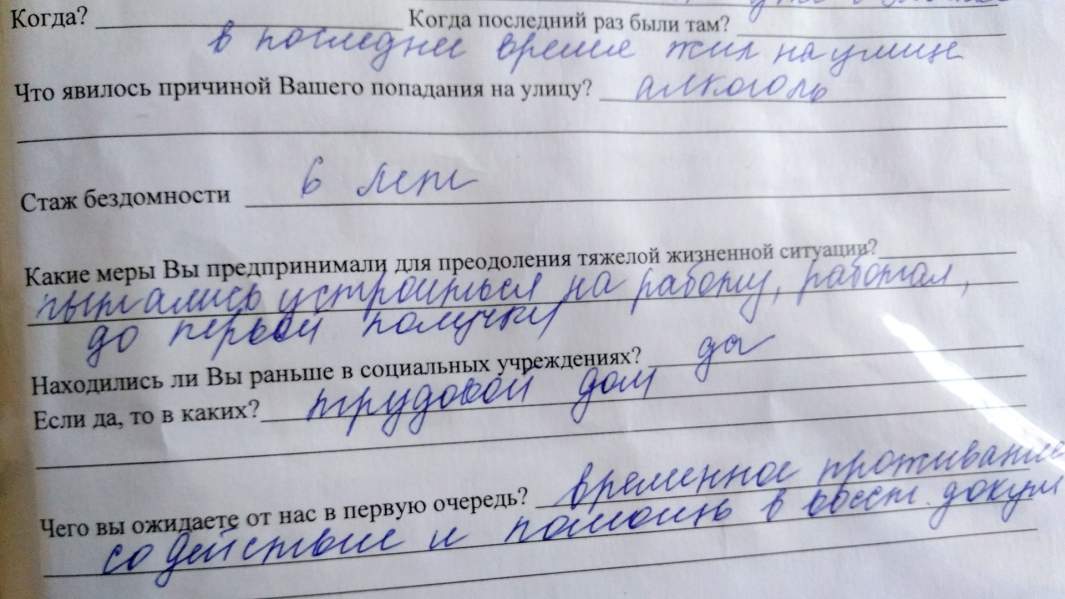 Когда? Когда последний раз были там?
в последнее время жил на улице
Что явилось причиной Вашего попадания на улицу? алкоголь
Стаж бездомности 6 лет
Какие меры Вы предпринимали для преодоления тяжелой жизненной ситуации?
пытались устроиться на работу, работал,
до первой получки
Находились ли Вы раньше в социальных учреждениях? да
Если да, то в каких? трудовой дом
Чего вы ожидаете от нас в первую очередь? временное проживание
содействие и помощь в восст. докум